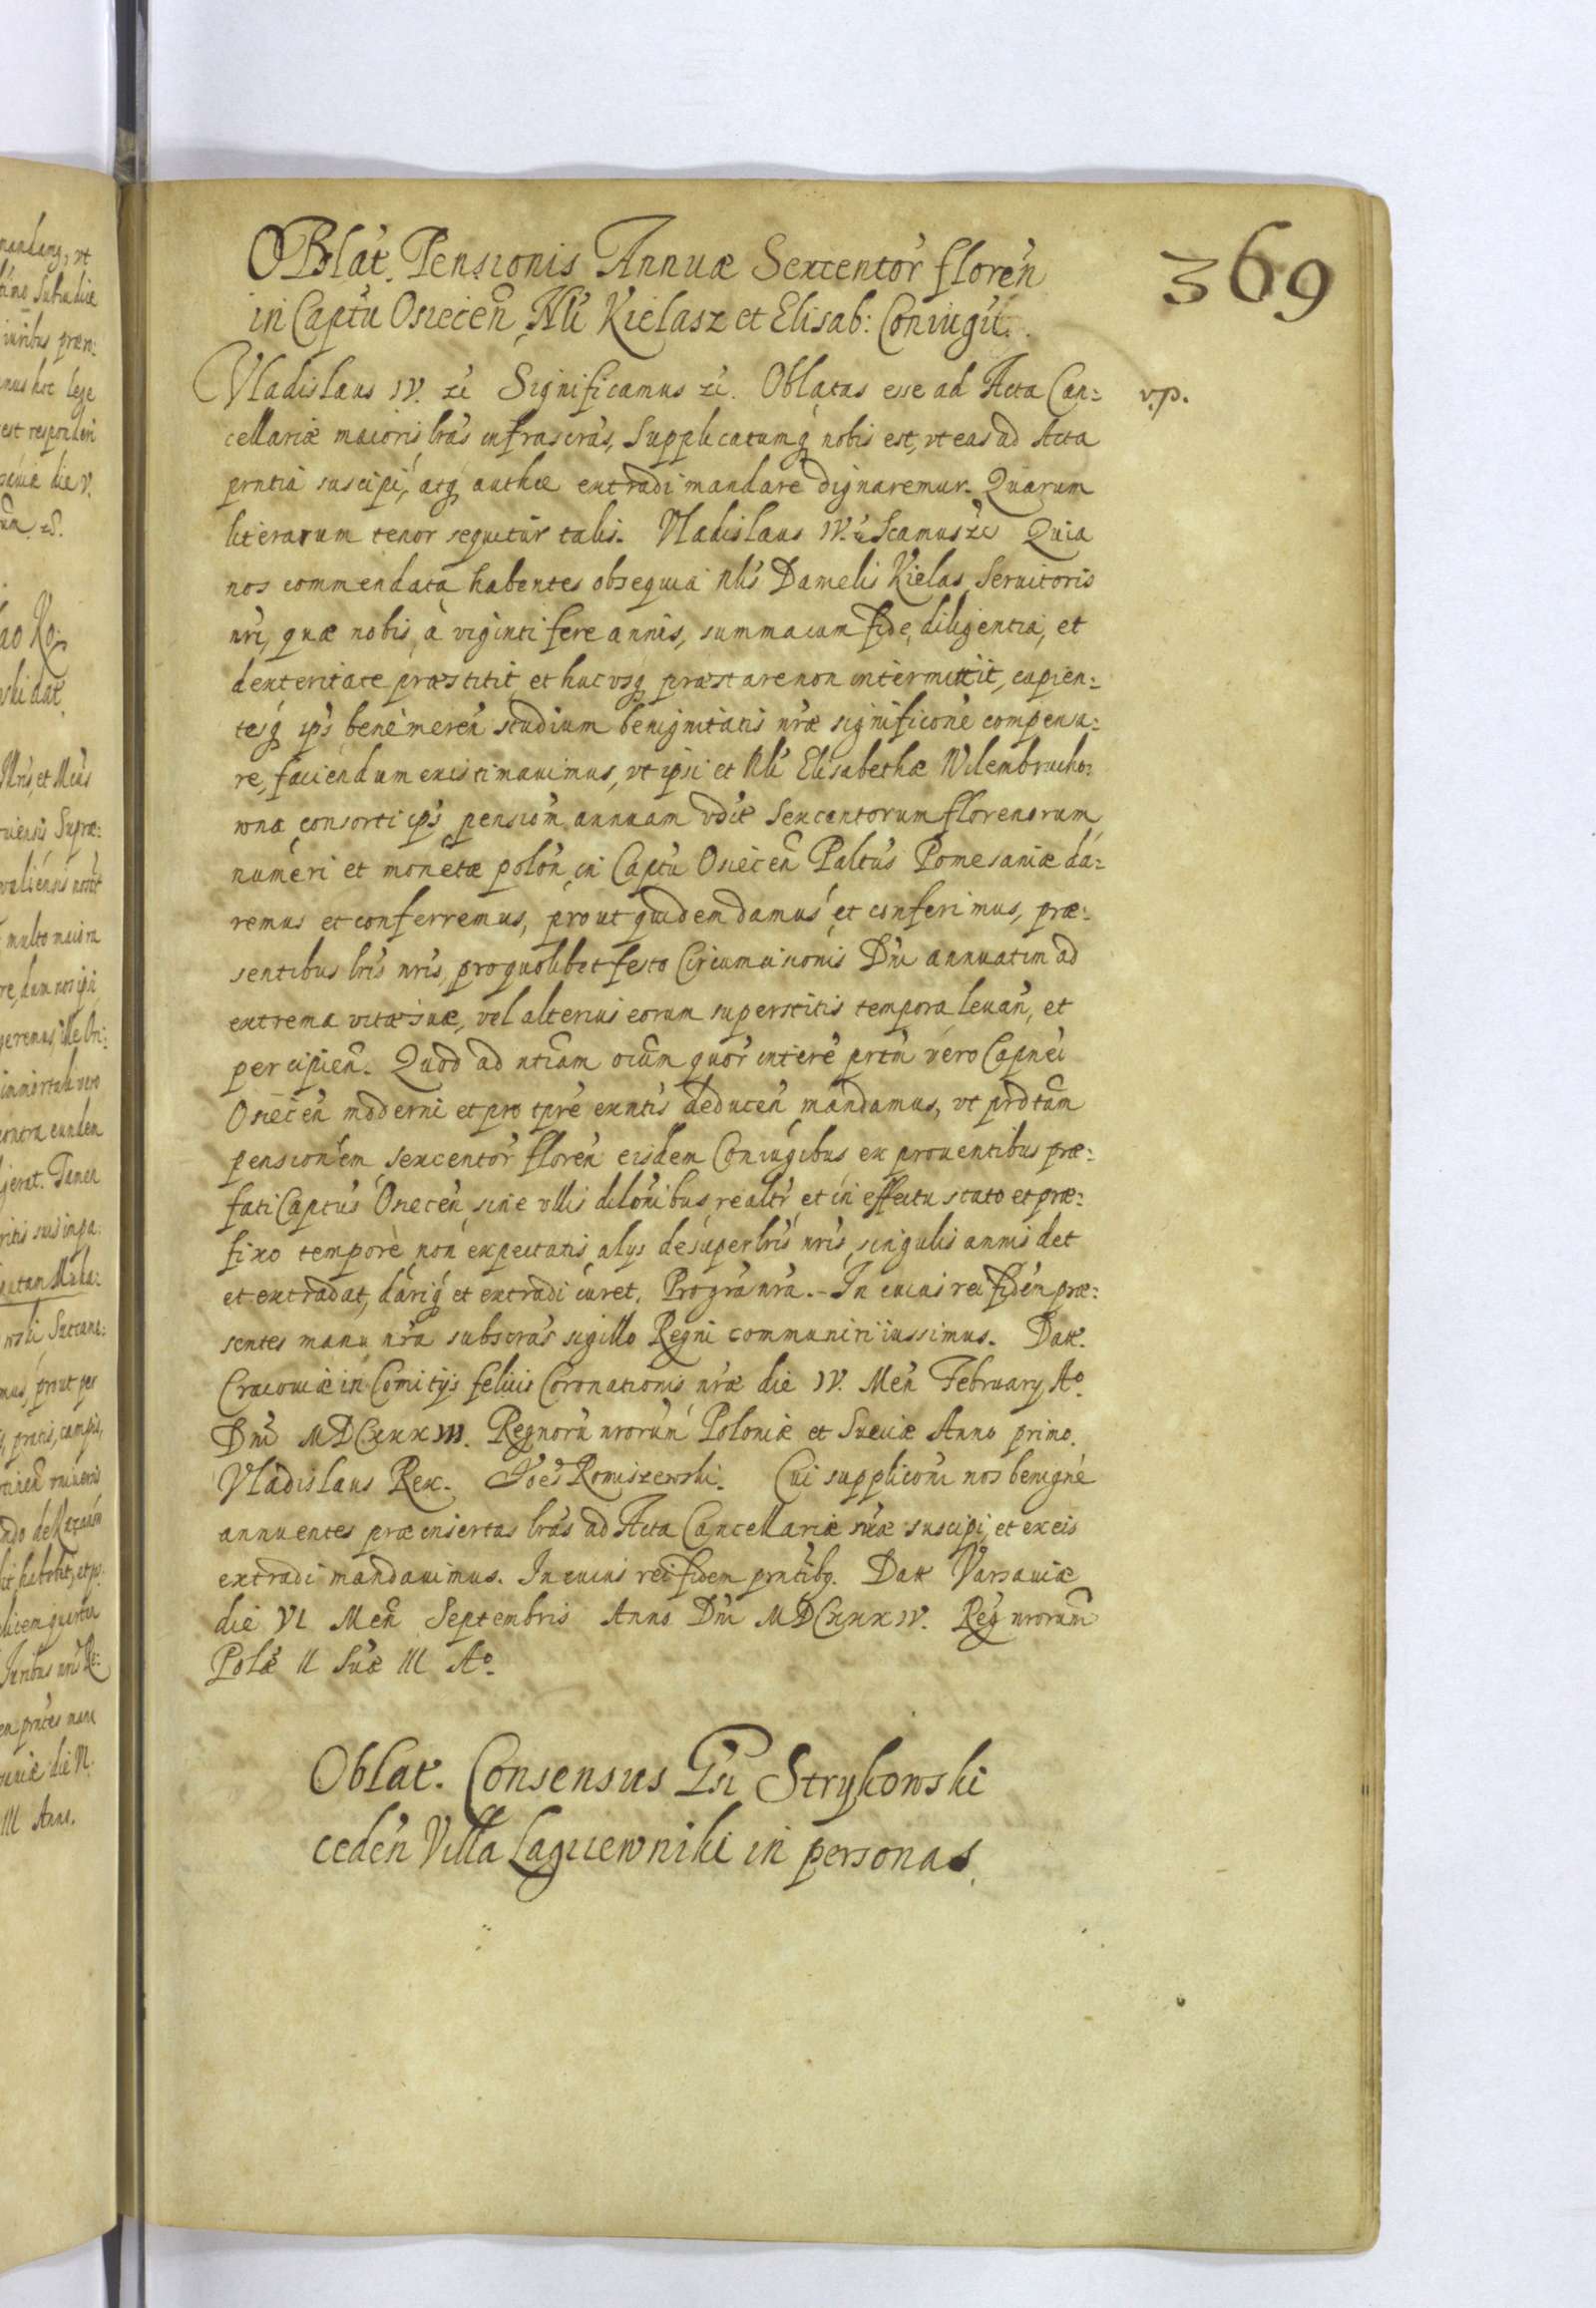 369
Oblat. Pensionis Annuæ Sexcentor̃ floreñ
in Captũ Osiecen̄, Nli Kielasz et Elisab: Coniugũ.
Vladislaus IV. &c̃ Significamus &c̃. Oblatas esse ad Acta Can=
v.p.
cellariæ maioris lrãs infrascrãs, Supplicatumq́ nobis est, vt eas ad Acta
prntia suscipi, atq́ authce extradi mandare dignaremur. Quarum
literarum tenor sequitur talis. Vladislaus IV. &c̃ Scamus &c̃ Quia
nos commendata habentes obsequia Nlis Danielis Kielas, Seruitoris
nri, quæ nobis à viginti fere annis, summa cum fide, diligentia, et
dexteritate præstitit, et huc vsq́ præstare non intermittit, cupien=
tesq́ ips bene meren̄ studium benignitatis nræ significone compensa=
re, faciendum existimauimus, vt ipsi et Nli Elisabethæ Wilembrucho=
wna consorti ips pension̄ annuam vdt Sexcentorum florenorum
numeri et monetæ polon̄, in Captu Osiecen̄ Paltus Pomesaniæ da=
remus et conferremus, prout quidem damus et conferimus, præ=
sentibus lris nris, pro quolibet festo Circumcisionis Dni annuatim ad
extrema vitæ suæ, vel alterius eorum superstitis tempora leuan̄, et
percipien̄. Quod ad ntiam oium quor̃ interē prtm vero Capnei
Osiecen̄ moderni et pro tpre exntis deducen̄ mandamus, vt prdtam
pensionem sexcentor̃ floren̄ eisdem Coniugibus ex prouentibus præ=
fati Captus Osiecen̄ sine vllis dilonibus realtr et in effectu stato et præ=
fixo tempore non expectatis alijs desuper lris nris, singulis annis det
et extradat, dariq́ et extradi curet. Pro gra nra.- In cuius rei fidem præ=
sentes manu nra subscras sigillo Regni communiri iussimus. Datt.
Cracouiæ in Comitijs felicis Coronationis nræ die IV. Men̄ February Ao.
Dni MDCXXXIII. Regnorũ nrorum Poloniæ et Sueciæ Anno primo.
Vladislaus Rex. Joes Romiszewski. Cui supplicōni nos benigne
annuentes præinsertas lrãs ad Acta Cancellariæ nræ suscipi, et ex eis
extradi mandauimus. In cuius rei fidem prntibq. Datt Varsauiæ
die VI Men̄ Septembris Anno Dni MDCXXXIV. Reg nrorum̄
Polæ II Suæ III Ao.
Oblat. Consensus Gsi Strykowski
ceden̄ Villa Lagiewniki in personas.